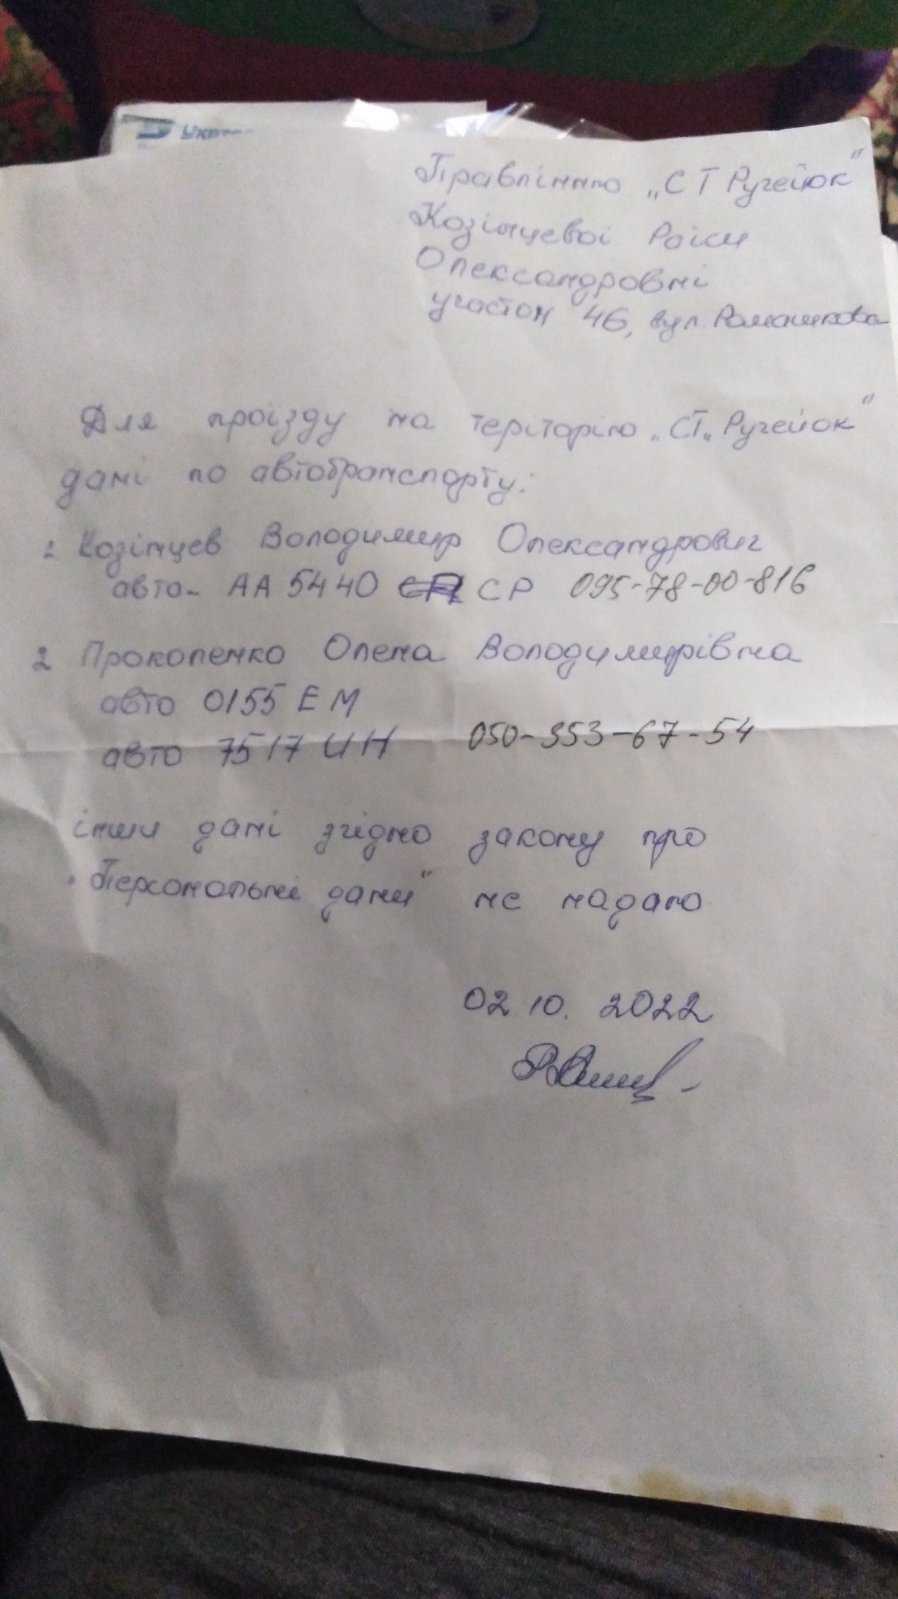 Правлінню „СТ Ручейок"
Козінцевої Раіси
Олександровні
участок 46, вул. Ромашкова
Для проїзду на територію „СТ„ Ручейок"
дані по автотранспорту:
1. Козінцев Володимир Олександрович
авто- АА 5440 СР 095-78-00-816
2 Прокопенко Олена Володимирівна
авто 0155 ЕМ
авто 7517 ИН 050-353-67-54
інши дані згідно закону про
"Персональні дани" не надаю
02 10. 2022